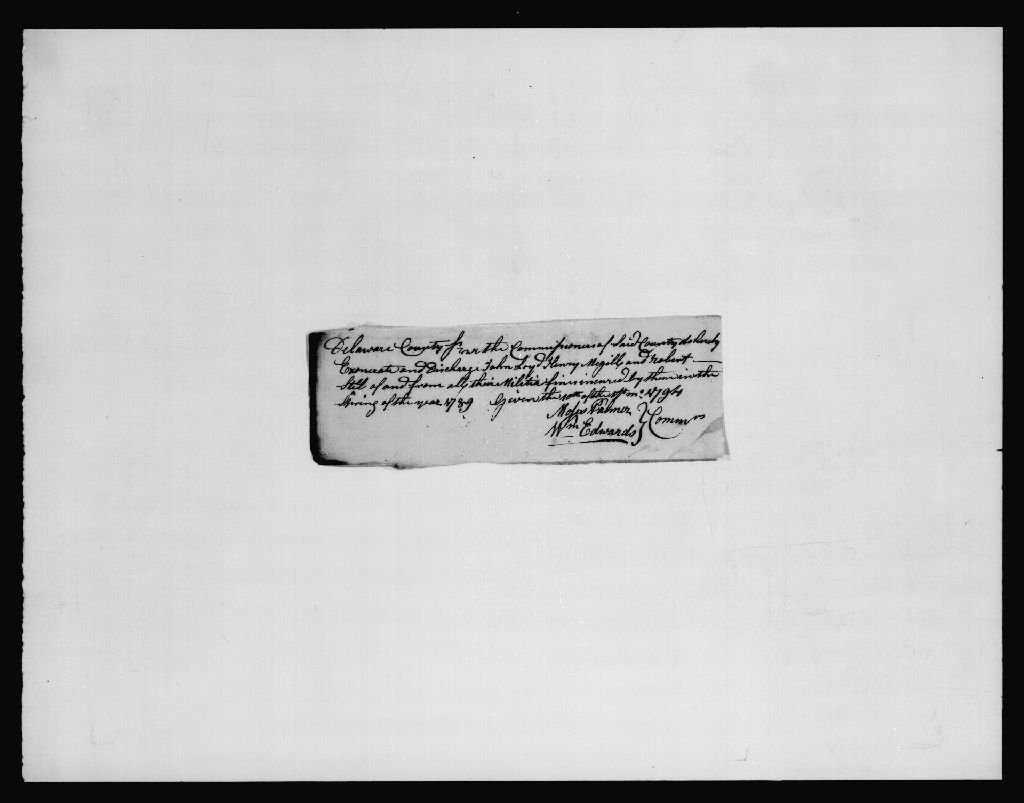 Delaware County ss. We the Commissioners of Said County do hereby
Exonerate and Discharge John Loyd Henry Megill and Robert
Steel of and from all their Militia fines incured by them in the
Spring of the year 1789 Given the 10th of the mo. 1794
Moses Palmer
Wm Edwards } Commrs